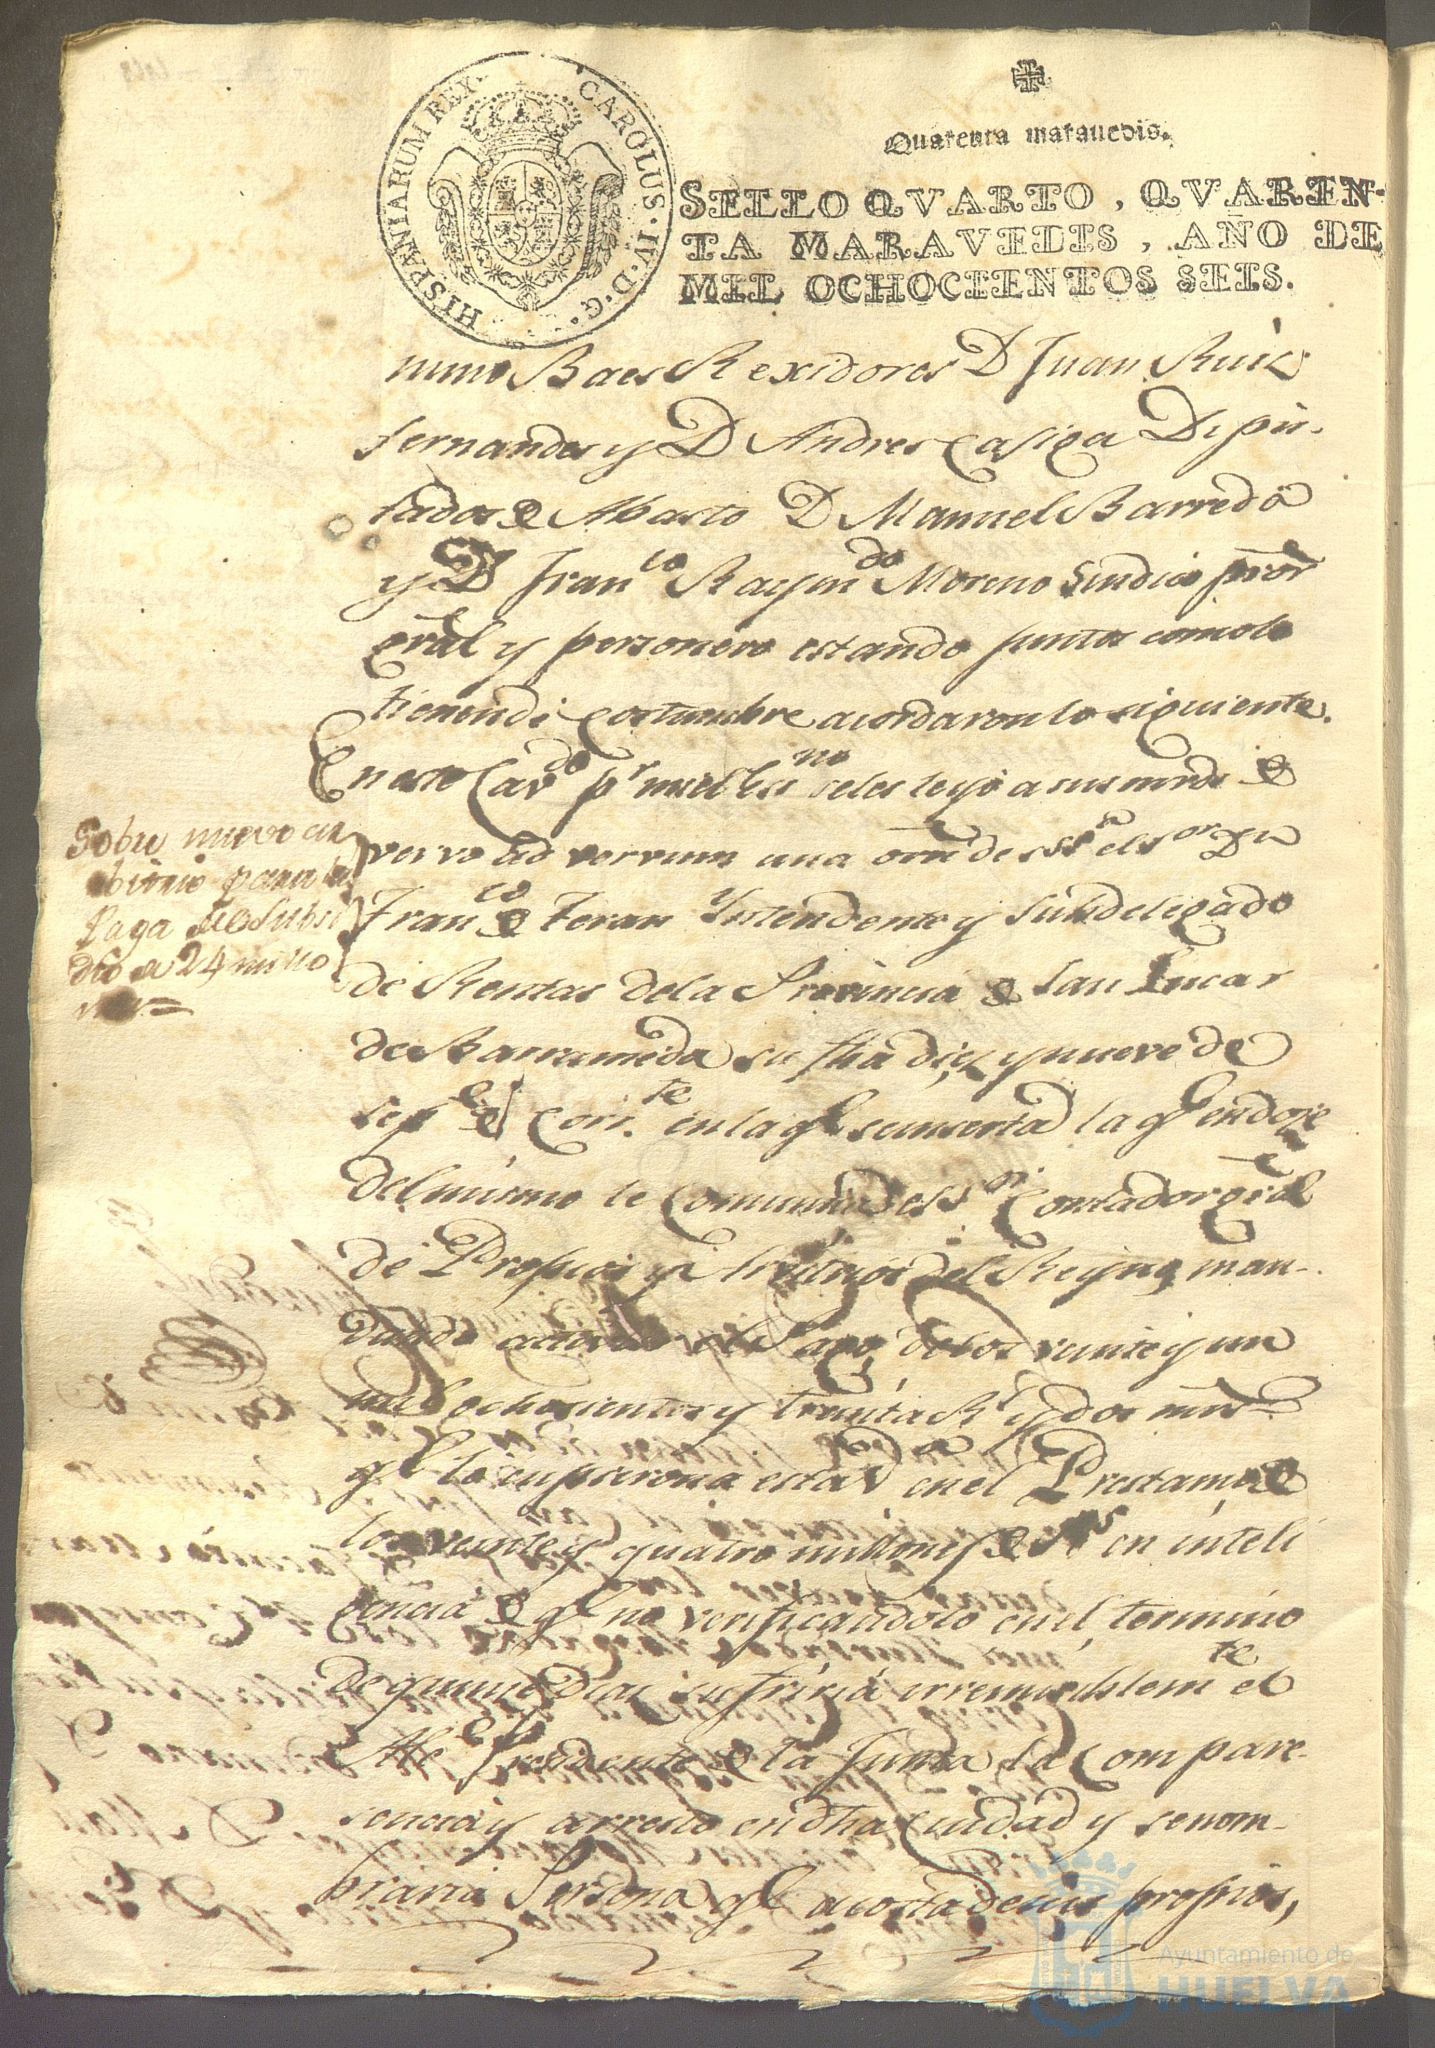 HISPANIARUM REX. CAROLUS·IV·D·G.
Quarenta marauedis.
SELLO QVARTO, QVAREN-
TA MARAVEDIS, AÑO DE
MIL OCHOCIENTOS SEIS.
nimo Baes Rexidores D Juan Ruiz
fernandes y D Andres Casiga Dipu-
tados de Abasto D Manuel Barreda
y D Franco Raymdo Moreno Sindico pror
gral y personero estando juntos como lo
tienen de Costumbre acordaron lo siguiente.
En este Cavdo pr mi el Essno se les leyó a sus mrds de
vervo ad vervum una orn de SSa el Sor Dn
Franco de Teran Yntendente y Subdelegado
de Rentas de la Provincia de San Lucar
de Barrameda su fha diez y nueve de
sepe del Corrte en la ql se inserta la qe en doze
del mismo le Comunicó el Sor Contador gral
de Propios y Arvitrios del Reyno, man-
dando activar el Pago, de los veinte y un
mil ochosientos y treinta Rs y dos mrs
qe le en el Prestamo de
los veinte y quatro millones de Rs en inteli
gencia de qe no verificandolo en el termino
de quinze Dias sufrirá irremisiblemte el
Alle Presidente de la Junta la Compare-
sencia y arresto en dha Ciudad y se nom-
braria Persona qe a costa de sus propios,
Sobre nuevo ar
bitrio para la
Paga del Subsi
dio de 24 millo
Ayuntamiento de
HUELVA